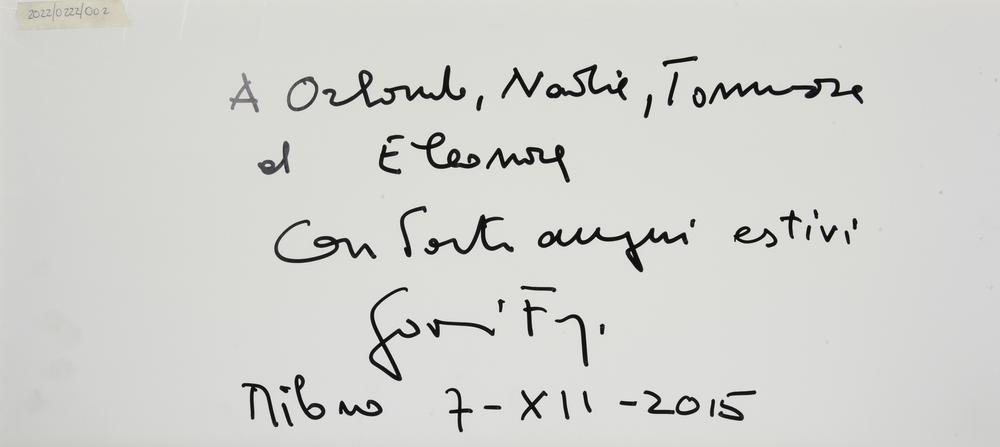 2022/0222/002
A Orlando, Nadia, Tommaso
ed Eleonora
Con tanti auguri estivi
Milano 7-XII-2015